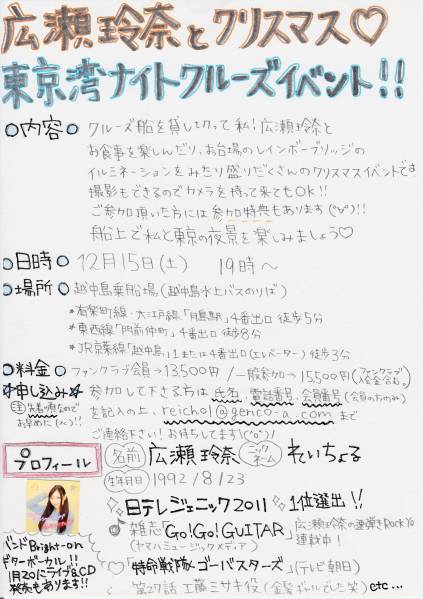 広瀬玲奈とクリスマス♡
東京湾ナイトクルーズイベント!!
○内容○ クルーズ船を貸し切って私!広瀬玲奈と
お食事を楽しんだり、お台場のレインボーブリッジの
イルミネーションをみたり盛りだくさんのクリスマスイベントです
撮影もできるのでカメラを持って来てもOK!!
ご参加頂いた方には参加特典もあります(°∀°)!!
船上で私と東京の夜景を楽しみましょう♡
○日時○ 12月15日(土) 19時〜
○場所○ 越中島乗船場(越中島水上バスのりば)
*有楽町線・大江戸線「月島駅」4番出口 徒歩5分
*東西線「門前仲町」4番出口 徒歩8分
*JR京葉線「越中島」1または4番出口(エレベーター)徒歩3分
○料金○ ファンクラブ会員→13,500円/一般参加→15,500円(ファンクラブ入会金含む。)
*申し込み* 参加して下さる方は氏名、電話番号、会員番号(会員の方のみ)
注 先着順なので
お早めに
を記入の上、reicho1@genco-a.comまで
ご連絡下さい!お待ちしてます\(^o^)/
プロフィール
名前 広瀬玲奈 ニックネーム れいちょる
生年月日 1992/8/23
日テレジェニック2011 1位選出!!
雑誌「Go!Go!GUITAR」広瀬玲奈の連弾きRock'Yo
(ヤマハミュージックメディア) 連載中!
「特命戦隊ゴーバスターズ」(テレビ朝日)
第27話 工藤ミサキ役(金髪ギャルでした笑) etc...
バンドBright-on
ギターボーカル!!
1月20にライブ&CD
発売もあります!!